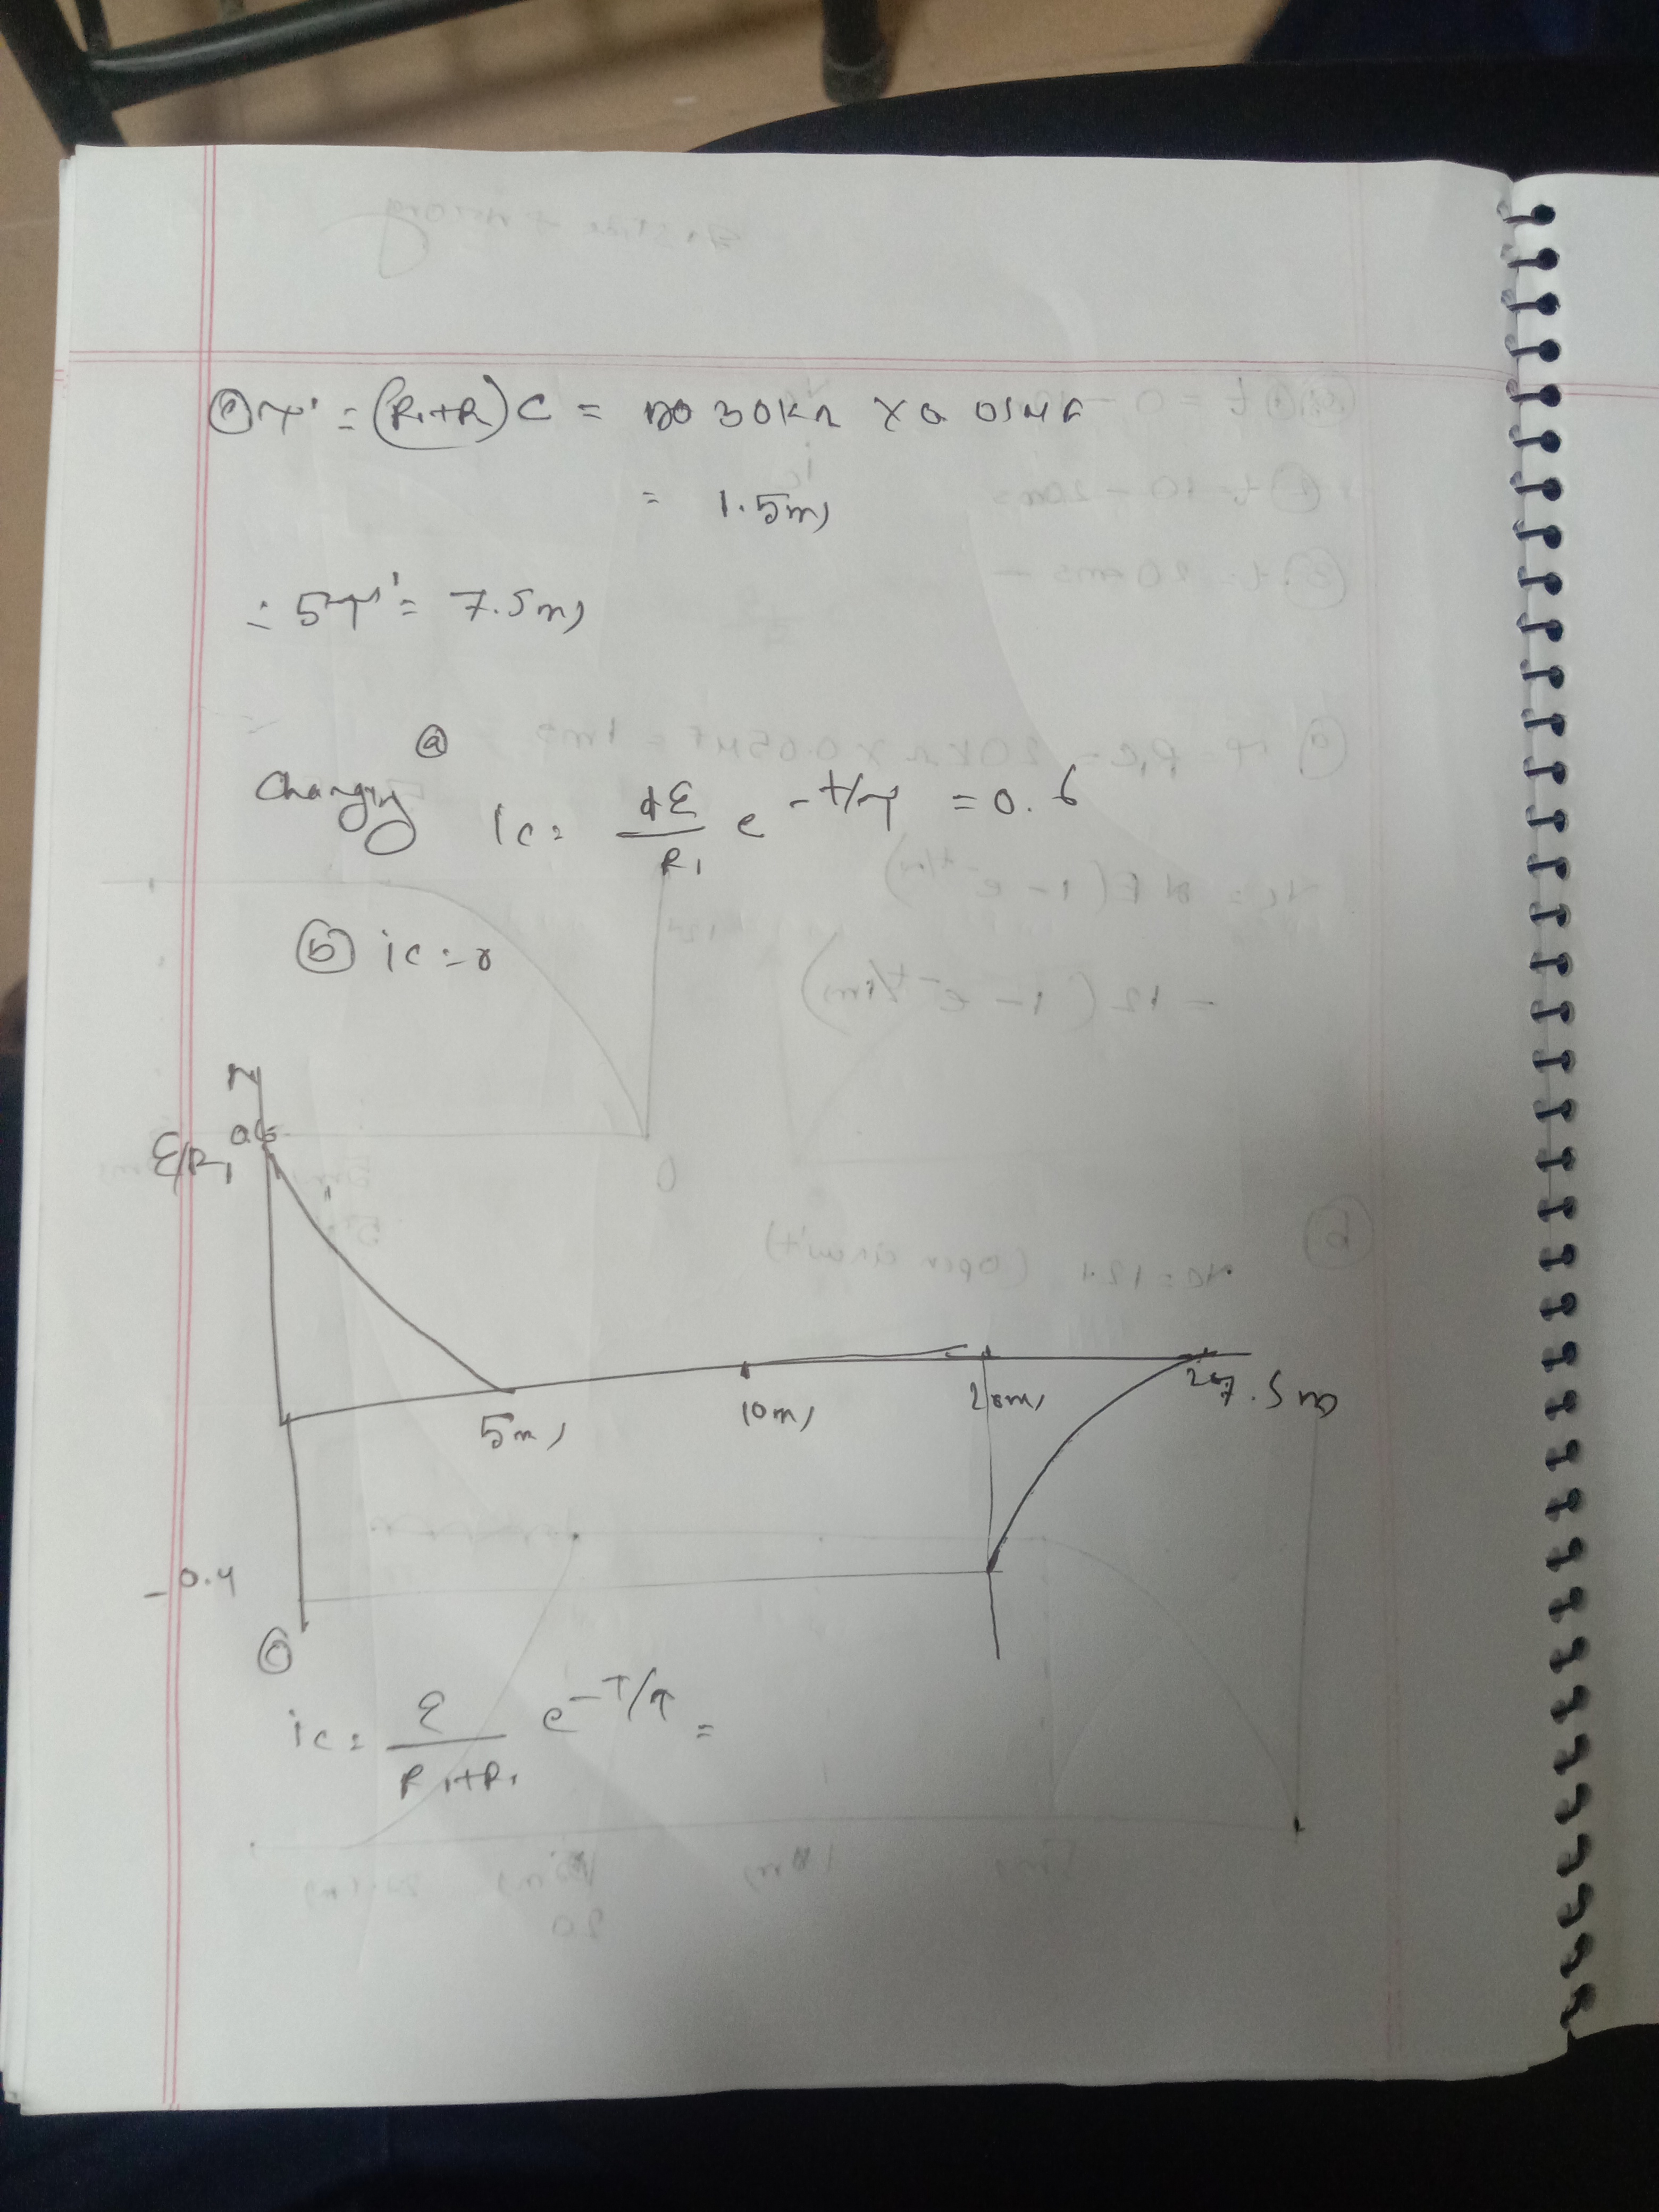 ⓒ τ' = (R₁+R)C = 30KΩ × 0.05μF
= 1.5ms
∴ 5τ' = 7.5ms
ⓐ
Charging ic = E/R₁ e^-t/τ = 0.6
ⓑ ic = 0
0.6
E/R₁
5ms
10ms
20ms
27.5ms
-0.4
ⓒ
ic = E/R₁+R₁ e^-T/τ =